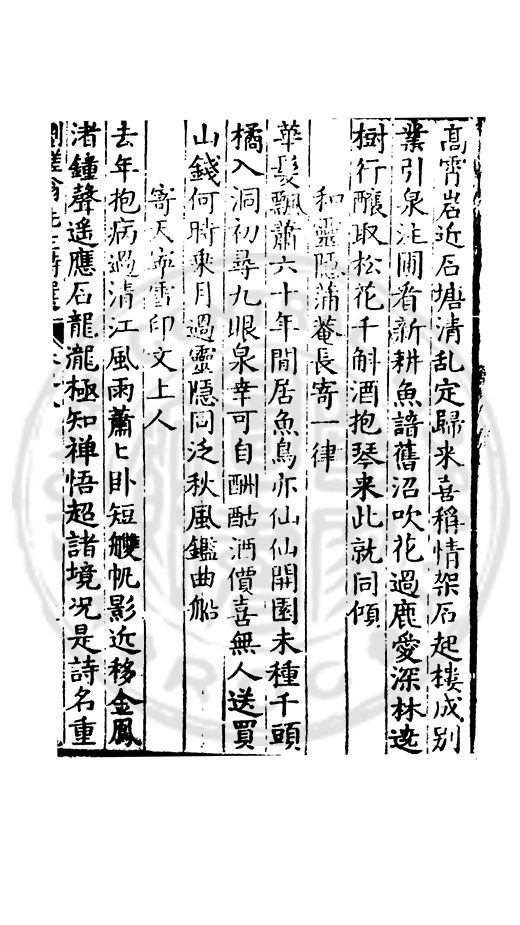 髙霄岩近石塘清乱定歸来喜稱情架石起樓成别
業引泉注圃看新耕魚諳舊沼吹花過鹿愛深林遶
樹行釀取松花千斛酒抱琴来此就同傾
和靈隱蒲菴長寄一律
華髪飄蕭六十年閒居魚鳥亦仙仙開園未種千頭
橘入洞初尋九眼泉幸可自酬酤酒價喜無人送買
山錢何時乘月過靈隱同泛秋風鑑曲船
寄天雪印文上人
去年抱病過清江風雨蕭〻卧短艭帆影近移金鳳
渚鐘聲遙應石龍瀧極知禅悟超諸境况是詩名重